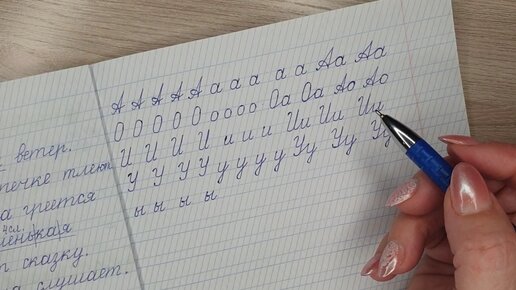 ветер.
печке тлеют
греется
4сл.
сказку.
слушает.
А А А А А а а а а а Аа Аа
О О О О О о о о о Оа Оа Ао Ао
И И И И и и и Ии Ии Ии
У У У У у у у у Уу Уу Уу
ы ы ы ы